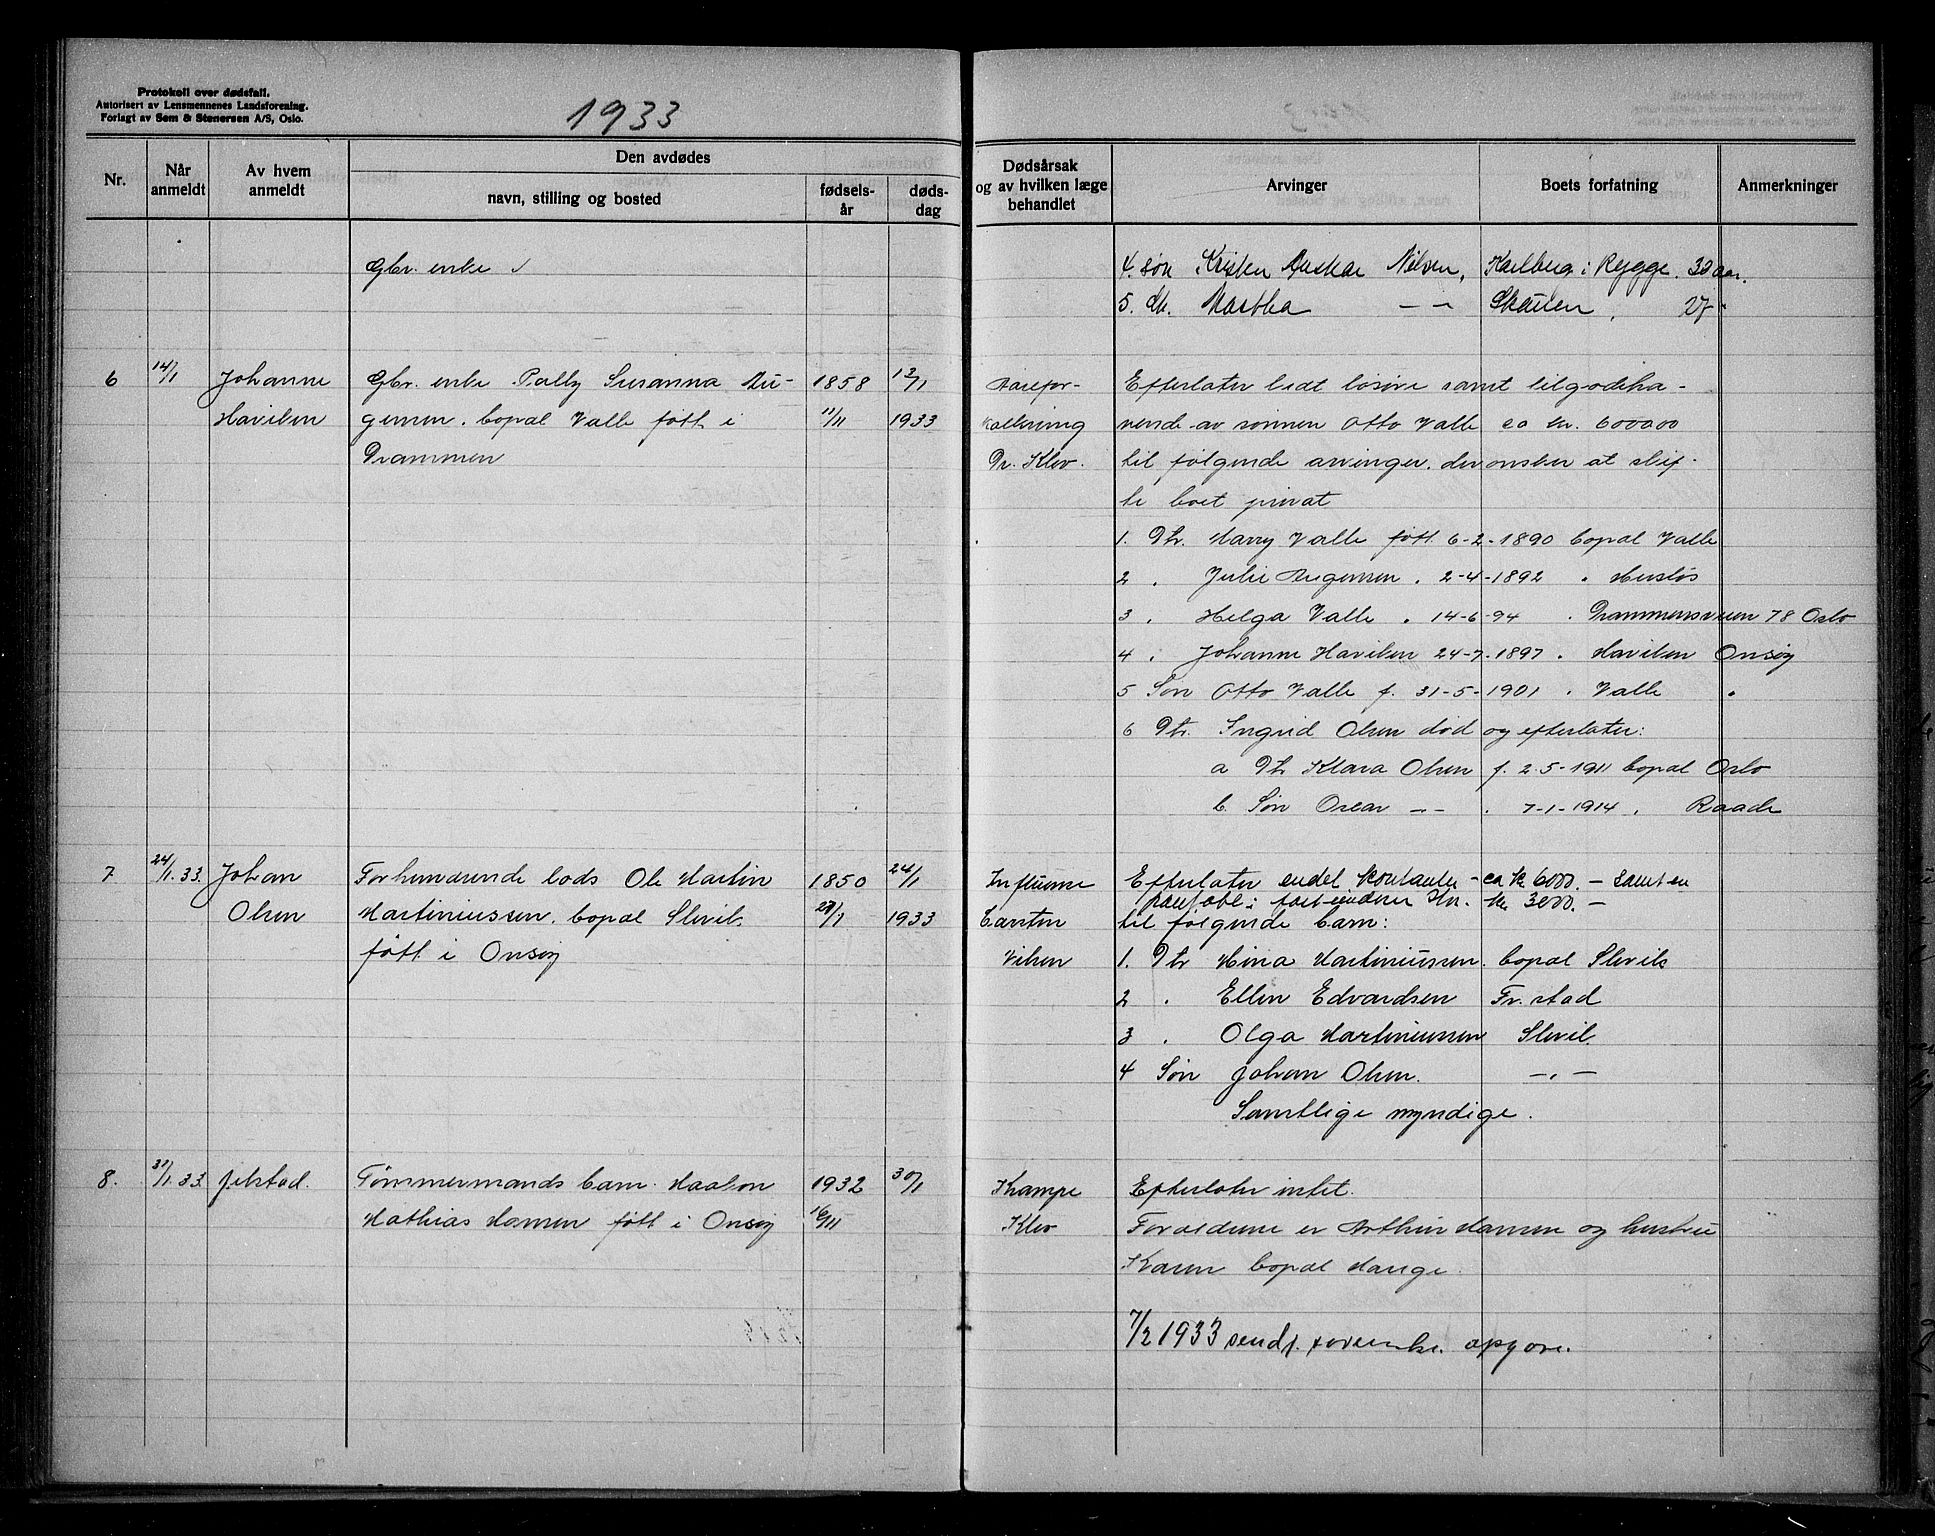 Protokoll over dødsfall.
Autorisert av Lensmennenes Landsforening.
Forlagt av Sem & Stenersen A/S, Oslo.
1933
Nr.
Når anmeldt
Av hvem anmeldt
Den avdødes
navn, stilling og bosted
fødsels-år
døds-dag
Dødsårsak og av hvilken læge behandlet
Arvinger
Boets forfatning
Anmerkninger
Gbr. enke
4. søn Kristen Nilsen, Karlberg i Rygge. 32 aar.
5. dtr. Martha — — Skauen 27 "
6 14/1 Johanne Gbr. enke Pally Susanna Au- 1858 12/1 Aarefor- Efterlater lidt løsøre samt tilgodeha-
Haviken gensen. bopæl Valle født i 11/11 1933 kalkning vende av sønnen Otto Valle ca kr. 6000.00
Drammen Dr. Klev. til følgende arvinger. der ønsker at skif-
te boet privat
1. Dtr. Marry Valle født 6-2-1890 bopæl Valle
2 " Julie Augensen " 2-4-1892 "
3 " Helga Valle " 14-6-94 " Drammensveien 78 Oslo
4 " Johanne Haviken 24-7-1897 " Haviken Onsøy
5 Søn Otto Valle f. 31-5-1901 " Valle "
6 Dtr. Ingrid Olsen død og efterlater:
a Dtr Klara Olsen f. 2-5-1911 bopæl Oslo
b. Søn Oscar — — " 7-1-1914 " Raade
7 24/1.33. Johan Forhenværende lods Ole Martin 1850 24/1 Influensa Efterlater endel kontanter - ca kr 6000.- samt en
pantobl. i kr. 3000.-
Olsen Martiniussen. bopæl Slevik /1 1933 Carsten til følgende barn:
født i Onsøy Nilsen 1. Dtr Mina Martiniussen. bopæl Slevik
2 " Ellen Edvardsen Fr.stad
3 " Olga Martiniussen Slevik
4 Søn Johan Olsen. — " —
Samtlige myndige.
8. 31/1.33 Jelstad. Tømmermands barn Haakon 1932 30/1 Krampe Efterlater intet.
Mathias Hansen født i Onsøy 16/11 Klev Forældrene er Arthur Hansen og hustru
Karen bopæl Mauge.
7/2 1933 sendt opgave.